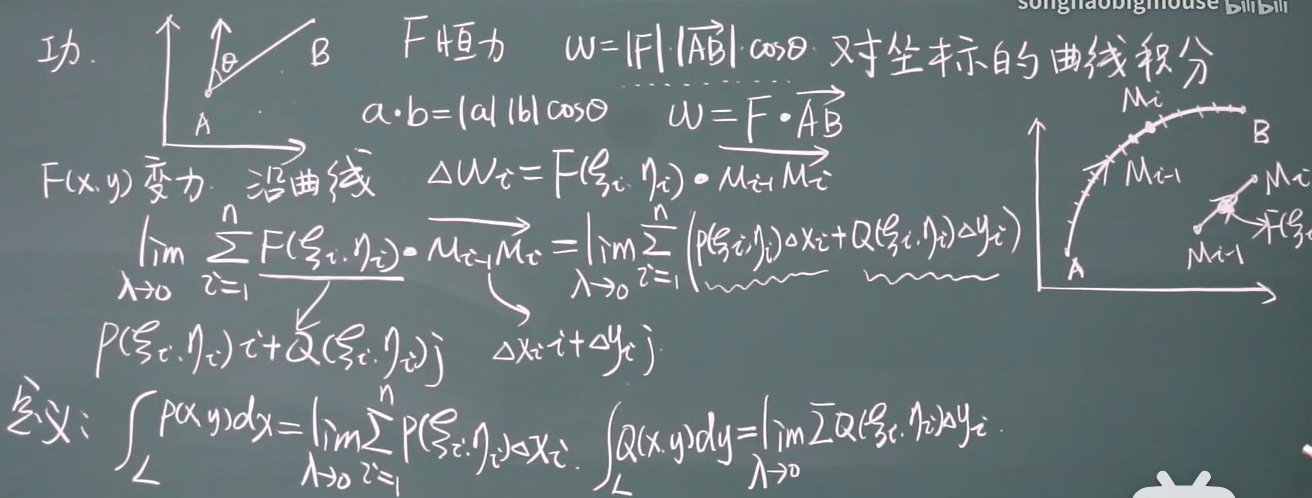 songhaobigmouse bilibili
功. θ B A F恒力 W=|F|·|AB|·cosθ. 对坐标的曲线积分
a·b=|a||b|cosθ W=F·AB
Mi B Mi-1 A Mi Mi-1 F(ξ
F(x.y)变力. 沿曲线 ΔWi=F(ξi.ηi)·Mi-1Mi
lim λ→0 n Σ i=1 F(ξi.ηi)·Mi-1Mi=lim λ→0 n Σ i=1 (P(ξi,ηi)Δxi+Q(ξi.ηi)Δyi)
P(ξi.ηi)i+Q(ξi.ηi)j Δxi i+Δyi j.
定义: ∫L P(x,y)dx=lim λ→0 n Σ i=1 P(ξi.ηi)Δxi. ∫L Q(x.y)dy=lim λ→0 ΣQ(ξi.ηi)Δyi.